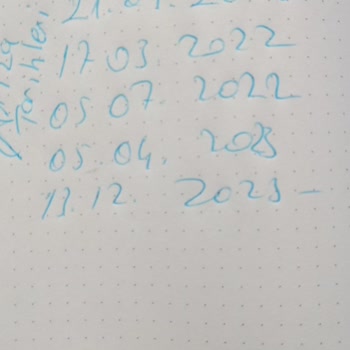 17 03 2022
05 07. 2022
05 04. 2023
13.12. 2023 -
Tarihleri